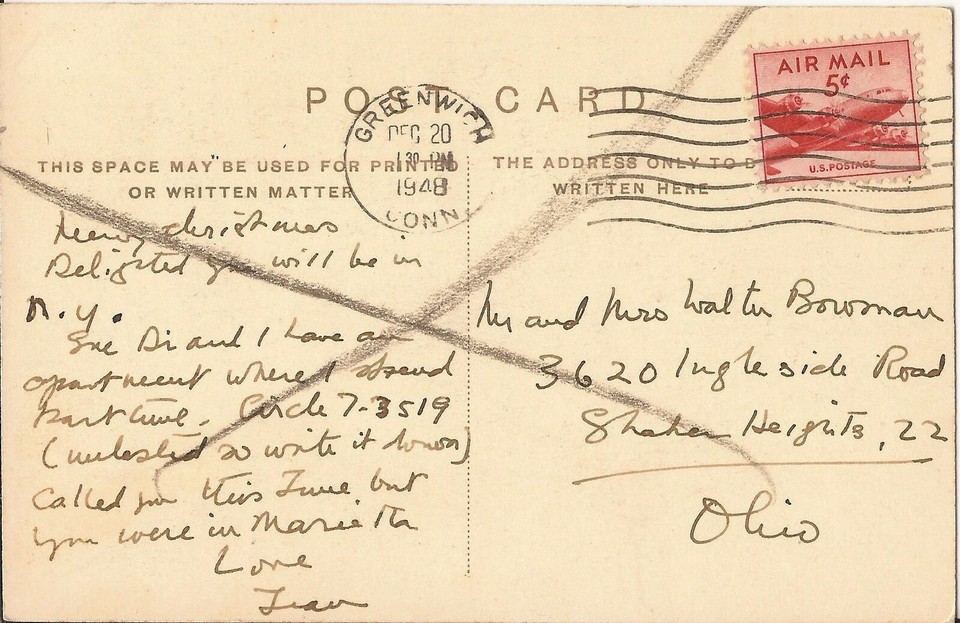 POST CARD
GREENWICH
DEC 20
1 30 PM
1948
CONN.
AIR MAIL
5¢
U.S. POSTAGE
THIS SPACE MAY BE USED FOR PRINTED
OR WRITTEN MATTER
THE ADDRESS ONLY TO B
WRITTEN HERE
Merry Christmas
Delighted you will be in
N.Y.
Sue Di and I have an
apartment where I spend
part time. Circle 7-3519
(unlisted so write it down)
Called you this June but
you were in Marietta
Love
Mr and Mrs Walter Bowman
3620 Ingleside Road
Shaker Heights, 22
Ohio